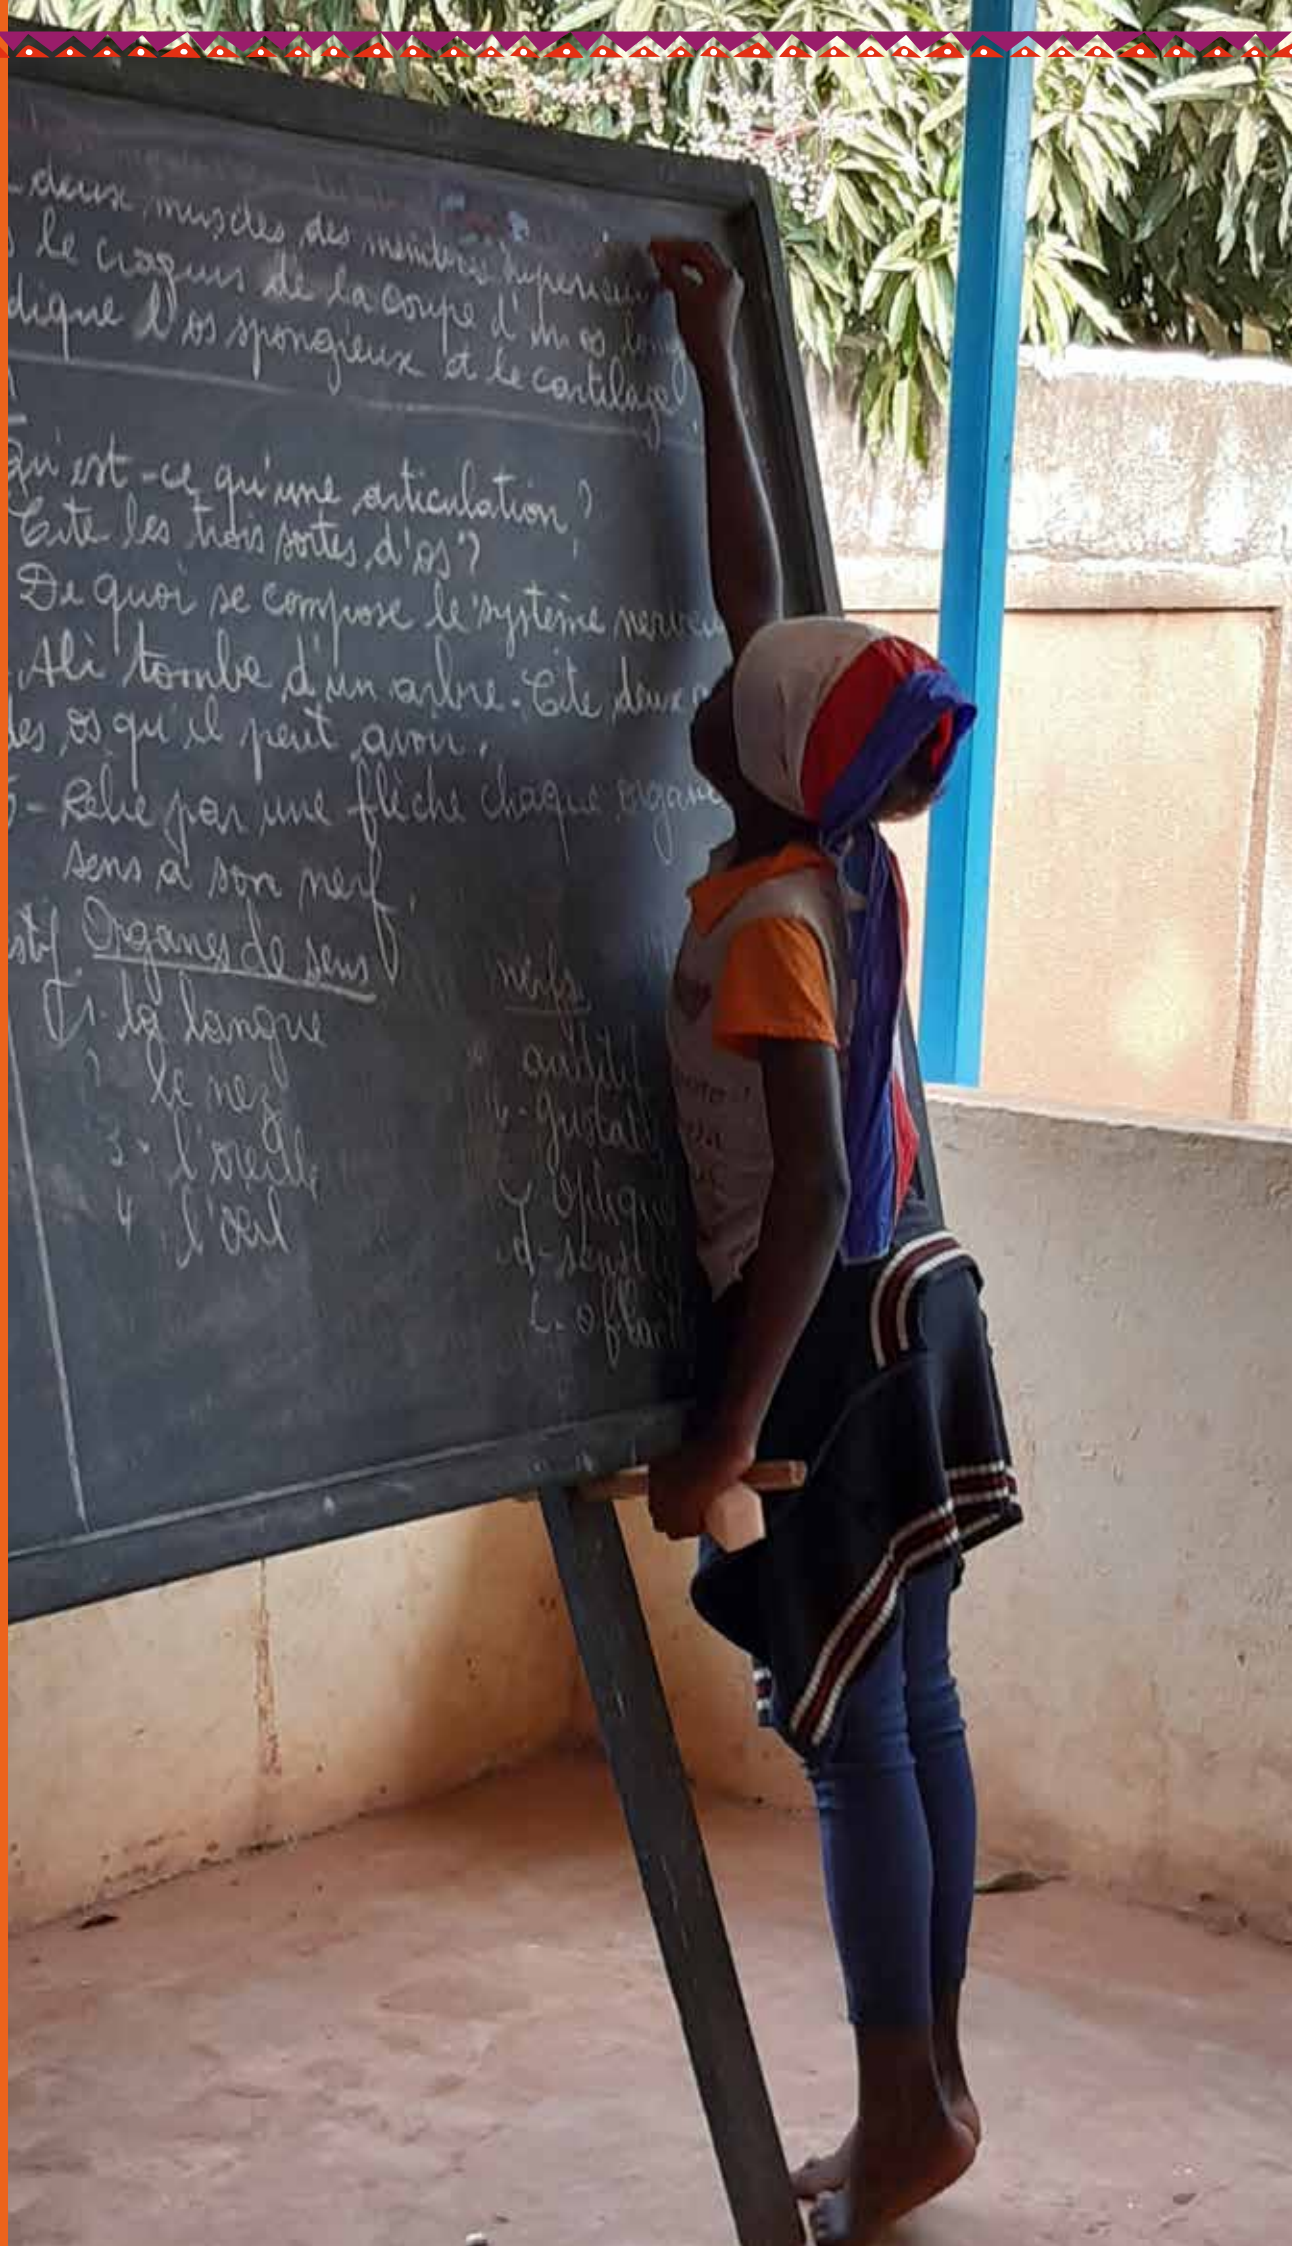 deux muscles des membres superieurs
le croquis de la coupe d'un os long
dique l'os spongieux et le cartilage
Qu'est-ce qu'une articulation?
Cite les trois sortes d'os?
De quoi se compose le système nerveu
Ali tombe d'un arbre. Cite deux
des os qu'il peut avoir.
5- Relie par une flèche chaque organe
sens à son nerf.
Organes de sens
nerfs
1. la langue
auditif
le nez
b- gustati
3- l'oreille
optique
4 l'œil
d- sensit